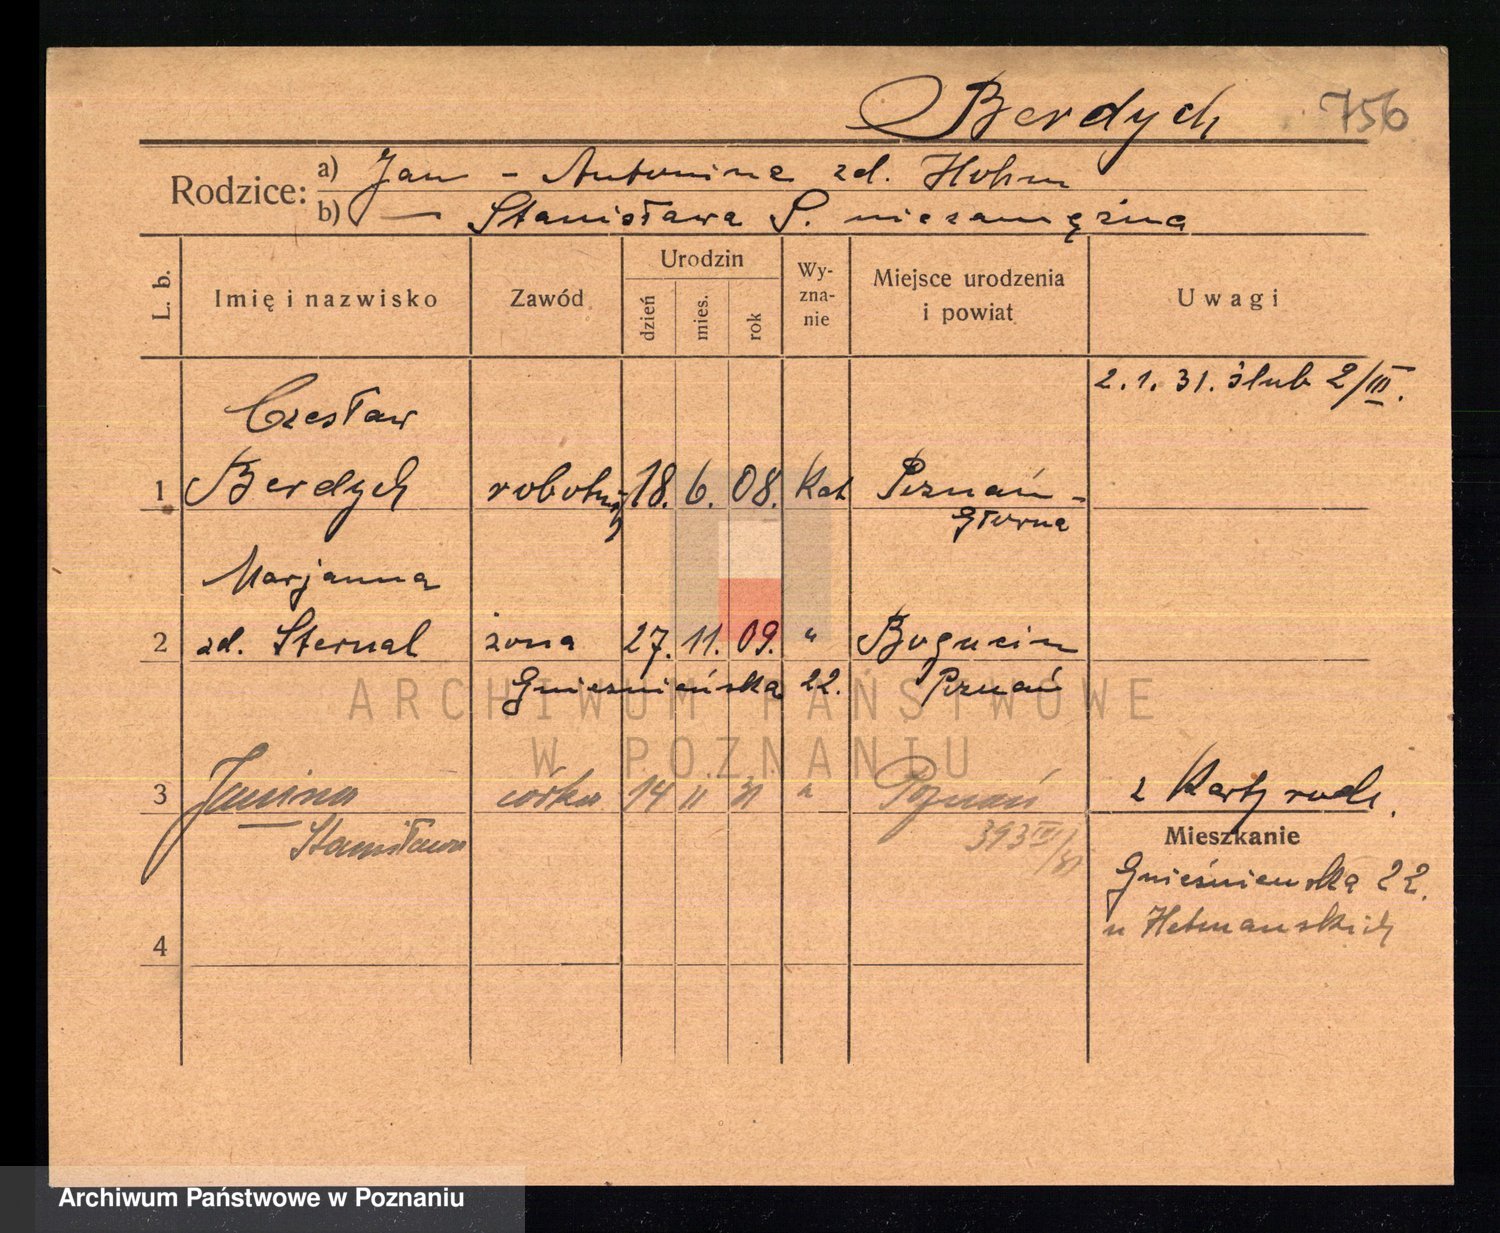 Berdych 756
Rodzice: a) Jan - Antonina zd. Hohm
b) — Stanisława S. niezamężna
L. b.
Imię i nazwisko
Zawód
Urodzin
dzień
mies.
rok
Wy-
zna-
nie
Miejsce urodzenia
i powiat
Uwagi
2. 1. 31. ślub 2/III.
Czesław
1 Berdych robotnik 18. 6. 08. Kat Poznań -
Główna
Marjanna
2 zd. Sternal żona 27. 11. 09. " Bogucin
Gnieźnieńska 22. Poznań
3 Janina córka 14 II 31 " Poznań z Karty rodz.
Stanisława 393
Mieszkanie
Gnieźnieńska 22.
u Hetmańskich
4
ARCHIWUM PAŃSTWOWE
W POZNANIU
Archiwum Państwowe w Poznaniu